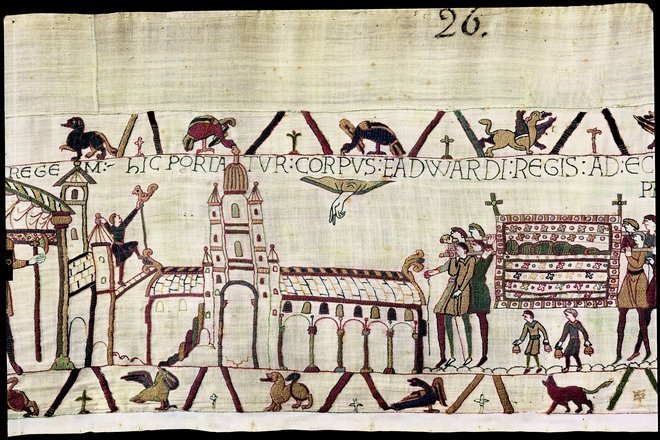 26.
REGE M:- HIC PORTATUR: CORPUS: EADWARDI: REGIS: AD: EC
P